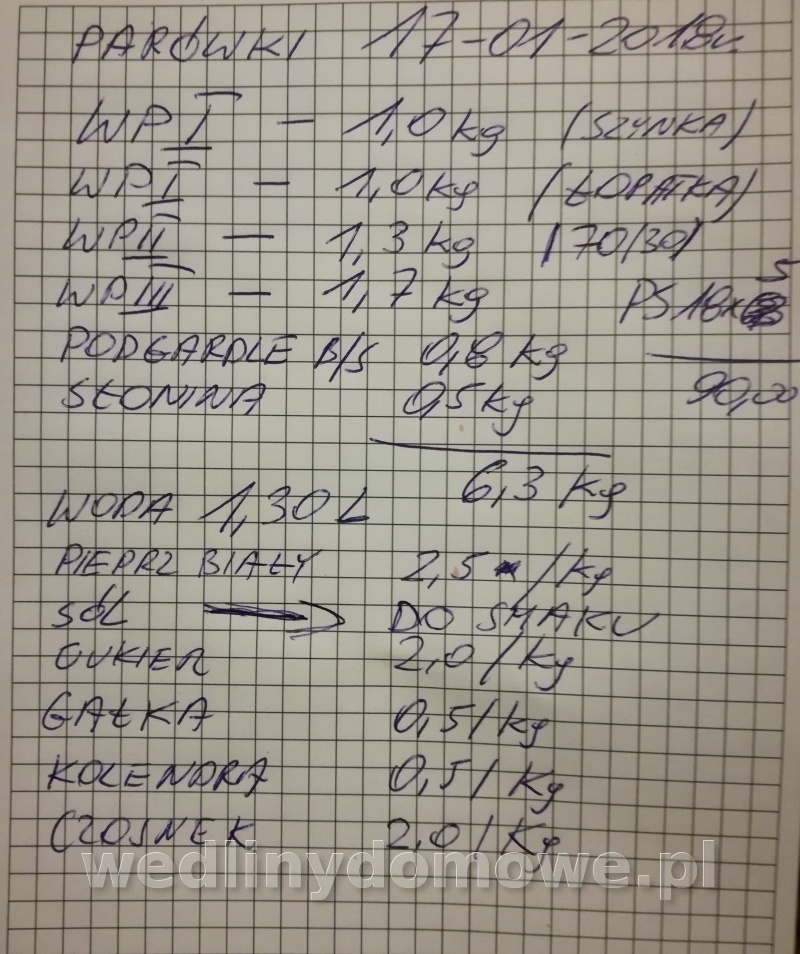 PARÓWKI 17-01-2018r.
WP I - 1,0 kg (SZYNKA)
WP I - 1,0 kg (ŁOPATKA)
WP II - 1,3 kg (70/30)
WP III - 1,7 kg PS 18x 5
PODGARDLE B/S 0,8 kg
90,00
SŁONINA 0,5 kg
6,3 kg
WODA 1,30 L
PIEPRZ BIAŁY 2,5 /kg
SÓL → DO SMAKU
CUKIER 2,0/kg
GAŁKA 0,5/kg
KOLENDRA 0,5/kg
CZOSNEK 2,0/kg
wedlinydomowe.pl